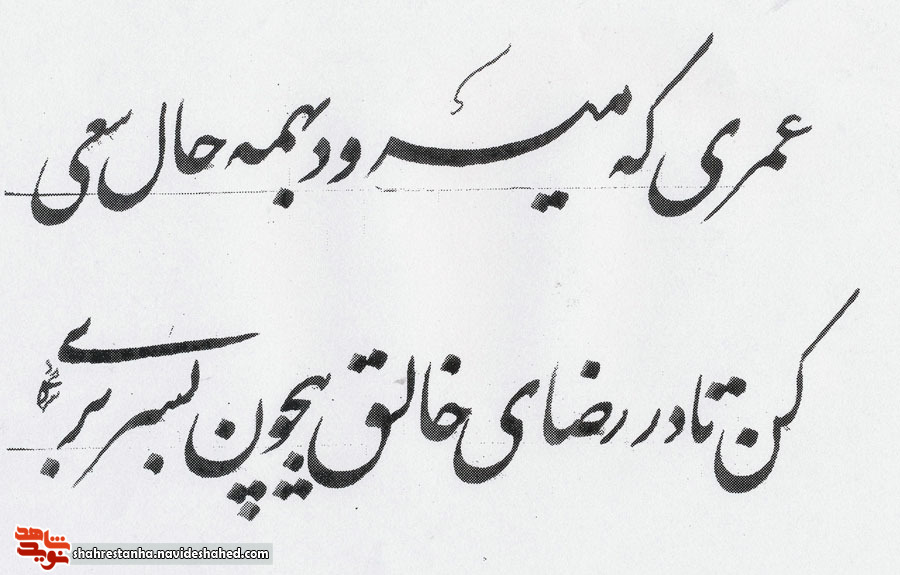 عمری که میرود بهمه حال سعی
کن تا در رضای خالق بیچون بسر بری
نوید شاهد
shahrestanha.navideshahed.com